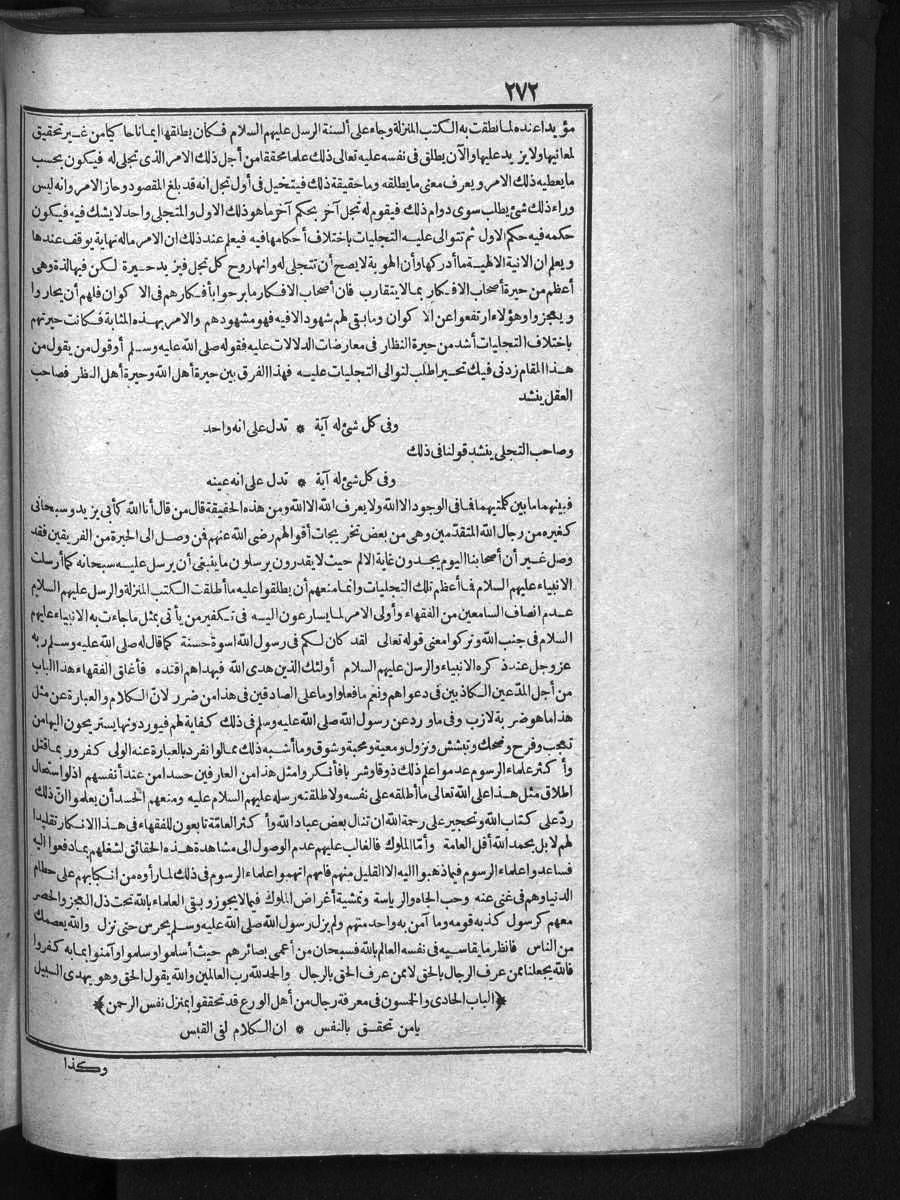 ٢٧٢
مؤيدا عنده لما نطقت به الكتب المنزلة وجاء على ألسنة الرسل عليهم السلام فكان يطلقها ايمانا حاكيا من غير تحقيق
لمعانيها ولا يزيد عليها والآن يطلق فى نفسه عليه تعالى ذلك علما محققا من أجل ذلك الامر الذى تجلى له فيكون بحسب
ما يعطيه ذلك الامر ويعرف معنى ما يطلقه وما حقيقة ذلك فيتخيل فى أول تجل انه قد بلغ المقصود وحاز الامر وانه ليس
وراء ذلك شئ يطلب سوى دوام ذلك فيقوم له تجل آخر بحكم آخر ما هو ذلك الاول والمتجلى واحد لا يشك فيه فيكون
حكمه فيه حكم الاول ثم تتوالى عليه التجليات باختلاف أحكامها فيه فيعلم عند ذلك ان الامر ماله نهاية يوقف عندها
ويعلم ان الانية الالهية ما أدركها وأن الهوية لا يصح أن تتجلى له وانها روح كل تجل فيزيد حيرة لكن فيها لذة وهى
أعظم من حيرة أصحاب الافكار بما لا يتقارب فان أصحاب الافكار ما برحوا بأفكارهم فى الا كوان فلهم أن يحاروا
ويعجزوا وهؤلاء ارتفعوا عن الا كوان وما بقى لهم شهود الا فيه فهو مشهودهم والامر بهذه المثابة فكانت حيرتهم
باختلاف التجليات أشد من حيرة النظار فى معارضات الدلالات عليه فقوله صلى الله عليه وسلم أو قول من يقول من
هذا المقام زدنى فيك تحيرا طلب لتوالى التجليات عليه فهذا الفرق بين حيرة أهل الله وحيرة أهل النظر فصاحب
العقل ينشد
وفى كل شئ له آية * تدل على انه واحد
وصاحب التجلى ينشد قولنا فى ذلك
وفى كل شئ له آية * تدل على انه عينه
فبينهما ما بين كلمتيهما فما فى الوجود الا الله ولا يعرف الله الا الله ومن هذه الحقيقة قال من قال أنا الله كأبى يزيد وسبحانى
كغيره من رجال الله المتقدمين وهى من بعض تخريجات أقوالهم رضى الله عنهم فمن وصل الى الحيرة من الفريقين فقد
وصل غير أن أصحابنا اليوم يجدون غاية الالم حيث لا يقدرون يرسلون ما ينبغى أن يرسل عليه سبحانه كما أرسلت
الانبياء عليهم السلام فما أعظم تلك التجليات وانما منعهم أن يطلقوا عليه ما أطلقت الكتب المنزلة والرسل عليهم السلام
عدم انصاف السامعين من الفقهاء وأولى الامر لما يسارعون اليه فى تكفير من يأتى بمثل ما جاءت به الانبياء عليهم
السلام فى جنب الله وتركوا معنى قوله تعالى لقد كان لكم فى رسول الله اسوة حسنة كما قال له صلى الله عليه وسلم ربه
عز وجل عند ذكره الانبياء والرسل عليهم السلام أولئك الذين هدى الله فبهداهم اقتده فأغلق الفقهاء هذا الباب
من أجل المدّعين الكاذبين فى دعواهم ونعم ما فعلوا وما على الصادقين فى هذا من ضرر لانّ الكلام والعبارة عن مثل
هذا ما هو ضربة لازب وفى ما ورد عن رسول الله صلى الله عليه وسلم فى ذلك كفاية لهم فيوردونها يستريحون اليها من
تعجب وفرح وضحك وتبشش ونزول ومعية ومحبة وشوق وما أشبه ذلك مما لو انفرد بالعبارة عنه الولى كفر وربما قتل
وأكثر علماء الرسوم عدموا علم ذلك ذوقا وشربا فأنكروا مثل هذا من العارفين حسدا من عند أنفسهم اذ لو استحال
اطلاق مثل هذا على الله تعالى ما أطلقه على نفسه ولا طلقته رسله عليهم السلام عليه ومنعهم الحسد أن يعلموا انّ ذلك
ردّ على كتاب الله وتحجير على رحمة الله ان تنال بعض عباد الله وأكثر العامّة تابعون للفقهاء فى هذا الانكار تقليدا
لهم لا بل بحمد الله أقل العامة وأمّا الملوك فالغالب عليهم عدم الوصول الى مشاهدة هذه الحقائق لشغلهم بما دفعوا اليه
فساعدوا علماء الرسوم فيما ذهبوا اليه الا القليل منهم فانهم اتهموا علماء الرسوم فى ذلك لما رأوه من انكبابهم على حطام
الدنيا وهم فى غنى عنه وحب الجاه والرياسة وتمشية أغراض الملوك فيما لا يجوز وبقى العلماء بالله تحت ذل العجز والحصر
معهم كرسول كذبه قومه وما آمن به واحد منهم ولم يزل رسول الله صلى الله عليه وسلم يحرس حتى نزل والله يعصمك
من الناس فانظر ما يقاسيه فى نفسه العالم بالله فسبحان من أعمى بصائرهم حيث أسلموا وسلموا وآمنوا بما به كفروا
فالله يجعلنا ممن عرف الرجال بالحق لا ممن عرف الحق بالرجال والحمد لله رب العالمين والله يقول الحق وهو يهدى السبيل
﴿الباب الحادى والخمسون فى معرفة رجال من أهل الورع قد تحققوا بمنزل نفس الرحمن﴾
يامن تحقق بالنفس * ان الكلام لفى القبس
وكذا